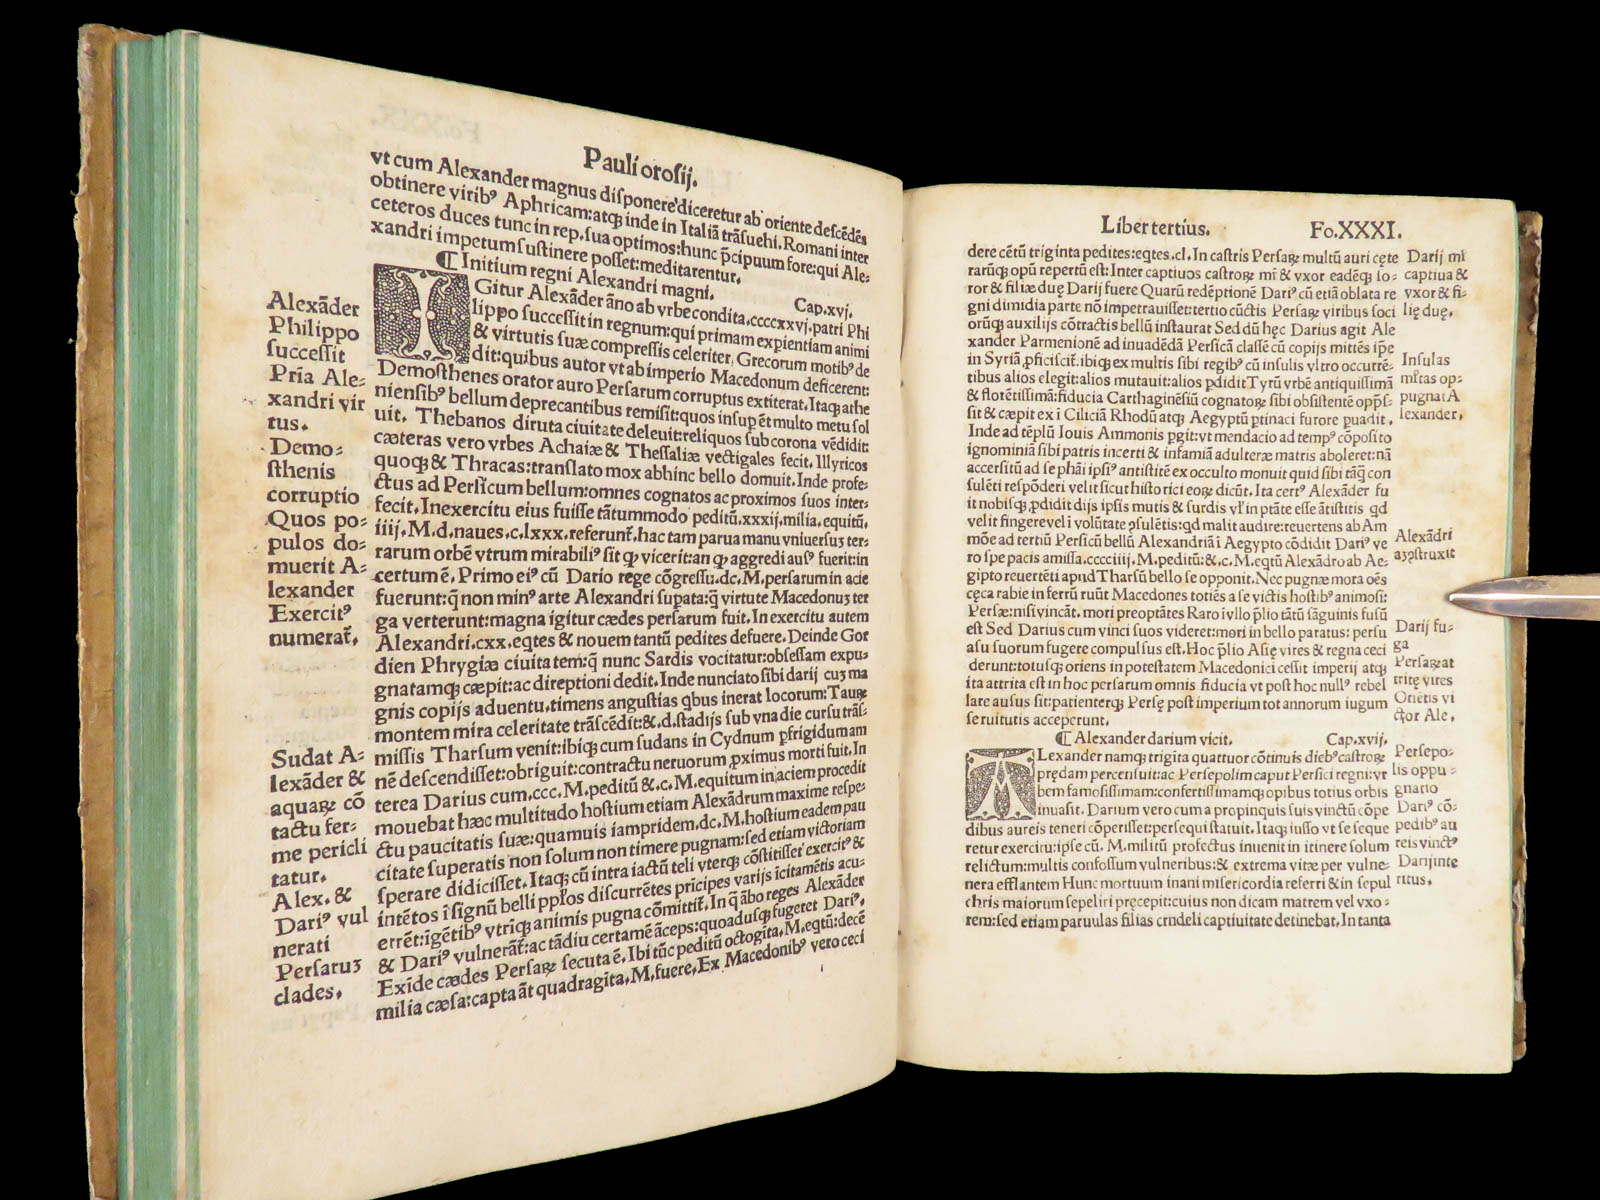 Pauli orosij.
vt cum Alexander magnus disponere diceretur ab oriente descẽdẽs
obtinere viribꝰ Aphricam:atqꝫ inde in Italiã trãsuehi. Romani inter
ceteros duces tunc in rep. sua optimos:hunc p̃cipuum fore:qui Ale-
xandri impetum sustinere posset:meditarentur.
¶ Initium regni Alexandri magni. Cap.xvj.
IGitur Alexãder ãno ab vrbe condita.ccccxxvj.patri Phi
lippo successit in regnum:qui primam expientiam animi
& virtutis suæ compressis celeriter Grecorum motibꝰ de
dit:quibus autor vt ab imperio Macedonum deficerent:
Demosthenes orator auro Persarum corruptus extiterat. Itaqꝫ athe
niensibꝰ bellum deprecantibus remisit:quos insup ẽt multo metu sol
uit. Thebanos diruta ciuitate deleuit:reliquos sub corona vẽdidit:
cæteras vero vrbes Achaiæ & Thessaliæ vectigales fecit. Illyricos
quoqꝫ & Thracas:translato mox abhinc bello domuit. Inde profe-
ctus ad Persicum bellum:omnes cognatos ac proximos suos inter-
fecit. In exercitu eius fuisse tãtummodo peditũ.xxxij.milia.equitũ.
iiij.M.d.naues.c.lxxx.referunt̃.hac tam parua manu vniuersuꝫ ter-
rarum orbẽ vtrum mirabiliꝰ sit ꝙ vicerit:an ꝙ aggredi ausꝰ fuerit:in
certum ẽ. Primo eiꝰ cũ Dario rege cõgressu.dc.M.persarum in acie
fuerunt:q̃ non minꝰ arte Alexandri supata:q̃ virtute Macedonuꝫ ter
ga verterunt:magna igitur cædes persarum fuit. In exercitu autem
Alexandri.cxx.eqtes & nouem tantũ pedites defuere. Deinde Gor
dien Phrygiæ ciuitatem:q̃ nunc Sardis vocitatur:obsessam expu-
gnatamqꝫ cæpit:ac direptioni dedit. Inde nunciato sibi darij cuꝫ ma
gnis copijs aduentu.timens angustias qbus inerat locorum:Tauꝝ
montem mira celeritate trãscẽdit:&.d.stadijs sub vna die cursu trãs-
missis Tharsum venit:ibiqꝫ cum sudans in Cydnum p̃frigidum am
nẽ descendisset:obriguit:contractu neruorum ꝓximus morti fuit. In
terea Darius cum.ccc.M.peditũ &.c.M.equitum in aciem procedit
mouebat hæc multitudo hostium etiam Alexãdrum maxime respe-
ctu paucitatis suæ:quamuis iampridem.dc.M.hostium eadem pau
citate superatis non solum non timere pugnam:sed etiam victoriam
sperare didicisset. Itaqꝫ cũ intra iactũ teli vterqꝫ cõstitisset exercitꝰ &
intẽtos ĩ signũ belli pplos discurrẽtes pricipes varijs icitamẽtis acu-
errẽt:ĩgẽtibꝰ vtriqꝫ animis pugna cõmittit̃. In q̃ ãbo reges Alexãder
& Dariꝰ vulnerãt̃:ac tãdiu certamẽ ãceps:quoadusqꝫ fugeret Dariꝰ.
Exĩde cædes Persaꝝ secuta ẽ. Ibi tũc peditũ octogĩta.M.eqtũ:decẽ
milia cæsa:capta ãt quadragĩta.M.fuere. Ex Macedonibꝰ vero ceci
Alexãder
Philippo
successit
Pria Ale-
xandri vir
tus.
Demo-
sthenis
corruptio
Quos po-
pulos do-
muerit A-
lexander
Exercitꝰ
numerat̃.
Sudat A-
lexãder &
aquaꝝ cõ
tactu fer-
me pericli
tatur.
Alex. &
Dariꝰ vul
nerati
Persaruꝫ
clades.
Liber tertius. Fo.XXXI.
dere cẽtũ triginta pedites:eqtes.cl. In castris Persaꝝ multũ auri cęte
rarũqꝫ opũ repertũ est: Inter captiuos castroꝝ mr̃ & vxor eadẽqꝫ so-
ror & filiæ duę Darij fuere Quarũ redẽptionẽ Dariꝰ cũ etiã oblata re
gni dimidia parte nõ impetrauisset:tertio cũctis Persaꝝ viribus soci
orũqꝫ auxilijs cõtractis bellũ instaurat Sed dũ hęc Darius agit Ale
xander Parmenionẽ ad inuadẽdã Persicã classẽ cũ copijs mittẽs ip̃e
in Syriã.pficiscit̃.ibiqꝫ ex multis sibi regibꝰ cũ insulis vltro occurrẽ-
tibus alios elegit:alios mutauit:alios pdidit Tyrũ vrbẽ antiquissimã
& florẽtissimã:fiducia Carthaginẽsiũ cognatoꝝ sibi obsistentẽ opp̃s-
sit & cæpit ex ĩ Ciliciã Rhodũ atqꝫ Aegyptũ ptinaci furore puadit.
Inde ad tẽplũ Iouis Ammonis pgit:vt mendacio ad tempꝰ cõposito
ignominiã sibi patris incerti & infamiã adulteræ matris aboleret:nã
accersitũ ad se phãi ipsiꝰ antistitẽ ex occulto monuit quid sibi tãqꝫ con
sulẽti respõderi velit sicut historici eoꝝ dicũt. Ita certꝰ Alexãder fu
it nobisqꝫ.pdidit dijs ipsis mutis & surdis vl̃ in ptãte esse ãtistitis qd
velit fingere vel ĩ volũtate ꝯsulẽtis:qd malit audire:reuertens ab Am
mõe ad tertiũ Persicũ bellũ Alexandriã ĩ Aegypto cõdidit Dariꝰ ve
ro spe pacis amissa.cccciiij.M.peditũ:&.c.M.eqtũ Alexãdro ab Ae-
gipto reuertẽti apud Tharsũ bello se opponit. Nec pugnæ mora oẽs
cęca rabie in ferrũ ruũt Macedones totiẽs a se victis hostibꝰ animosi:
Persæ:nisi vincãt. mori preoptãtes Raro ĩ vllo p̃lio tãtũ sãguinis fusũ
est Sed Darius cum vinci suos videret:mori in bello paratus: persu
asu suorum fugere compulsus est. Hoc p̃lio Asię vires & regna ceci
derunt:totusqꝫ oriens in potestatem Macedonici cessit imperij atqꝫ
ita attrita est in hoc persarum omnis fiducia vt post hoc nullꝰ rebel
lare ausus sit:patienterqꝫ Persę post imperium tot annorum iugum
seruitutis acceperunt.
¶ Alexander darium vicit. Cap.xvij.
ALexander namqꝫ trigita quattuor cõtinuis diebꝰ castroꝝ
prędam percensuit:ac Persepolim caput Persici regni:vr
bem famosissimam:confertissimamqꝫ opibus totius orbis
inuasit. Darium vero cum a propinquis suis vinctũ cõpe
dibus aureis teneri cõperisset:persequi statuit. Itaqꝫ iusso vt se seque
retur exercitu:ipse cũ. M. militũ profectus inuenit in itinere solum
relictum:multis confossum vulneribus:& extrema vitæ per vulne-
nera efflantem Hunc mortuum inani misericordia referri & in sepul
chris maiorum sepeliri pręcepit:cuius non dicam matrem vel vxo-
rem:sed etiam paruulas filias crndeli captiuitate detinebat. In tanta
Darij mr̃
captiua &
vxor & fi-
lię duę.
Insulas
ml̃tas op-
pugnat A
lexander.
Alexãdri
aꝫꝯstruxit
Darij fu-
ga
Persaꝝ at
tritę vires
Oriẽtis vi
ctor Ale.
Persepo-
lis oppu-
gnatio
Dariꝰ cõ-
pedibꝰ au
reis vinctꝰ
Darij inte
ritus.